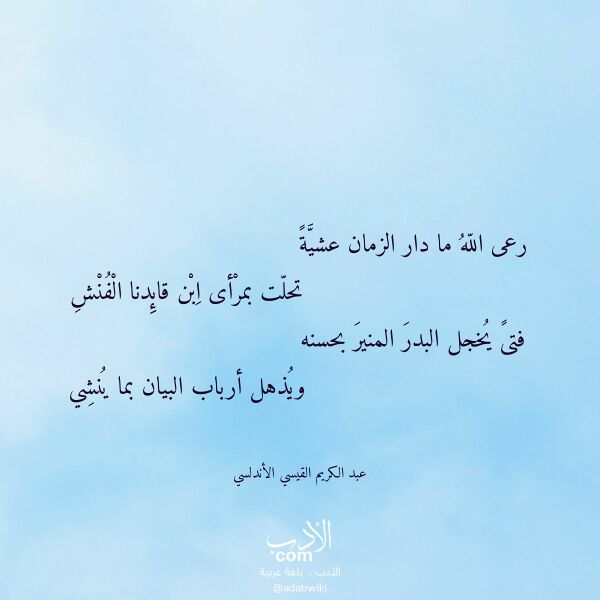 رعى اللّهُ ما دار الزمان عشيَّةً
تحلّت بمرْأى اِبْن قايِٕدنا الْفُنْشِ
فتىً يُخجل البدرَ المنيرَ بحسنه
ويُذهل أرباب البيان بما يُنشِي
عبد الكريم القيسي الأندلسي
الأدب
com
الأدب .. بلغة عربية
@adabwiki